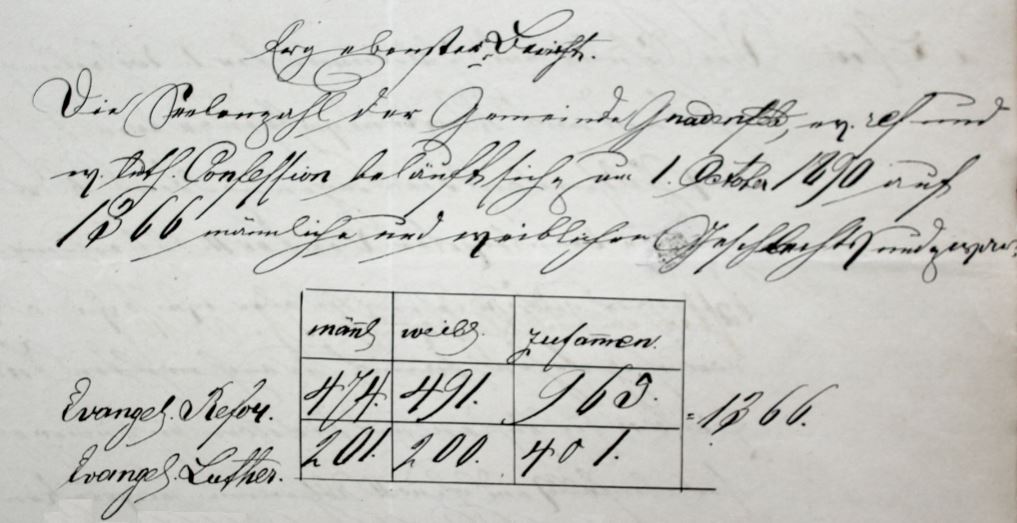 Ergebenster Bericht.
Die Seelenzahl der Gemeinde Gnadenfeld, ev. ref und
ev. luth. Confession beläuft sich am 1. October 1890 auf
1366 männliche und weiblichen Geschlechts und zwar:
männl weibl. zusam̅en.
Evangel. Refor. 474. 491. 965. = 1366.
Evangel. Luther. 201. 200. 401.